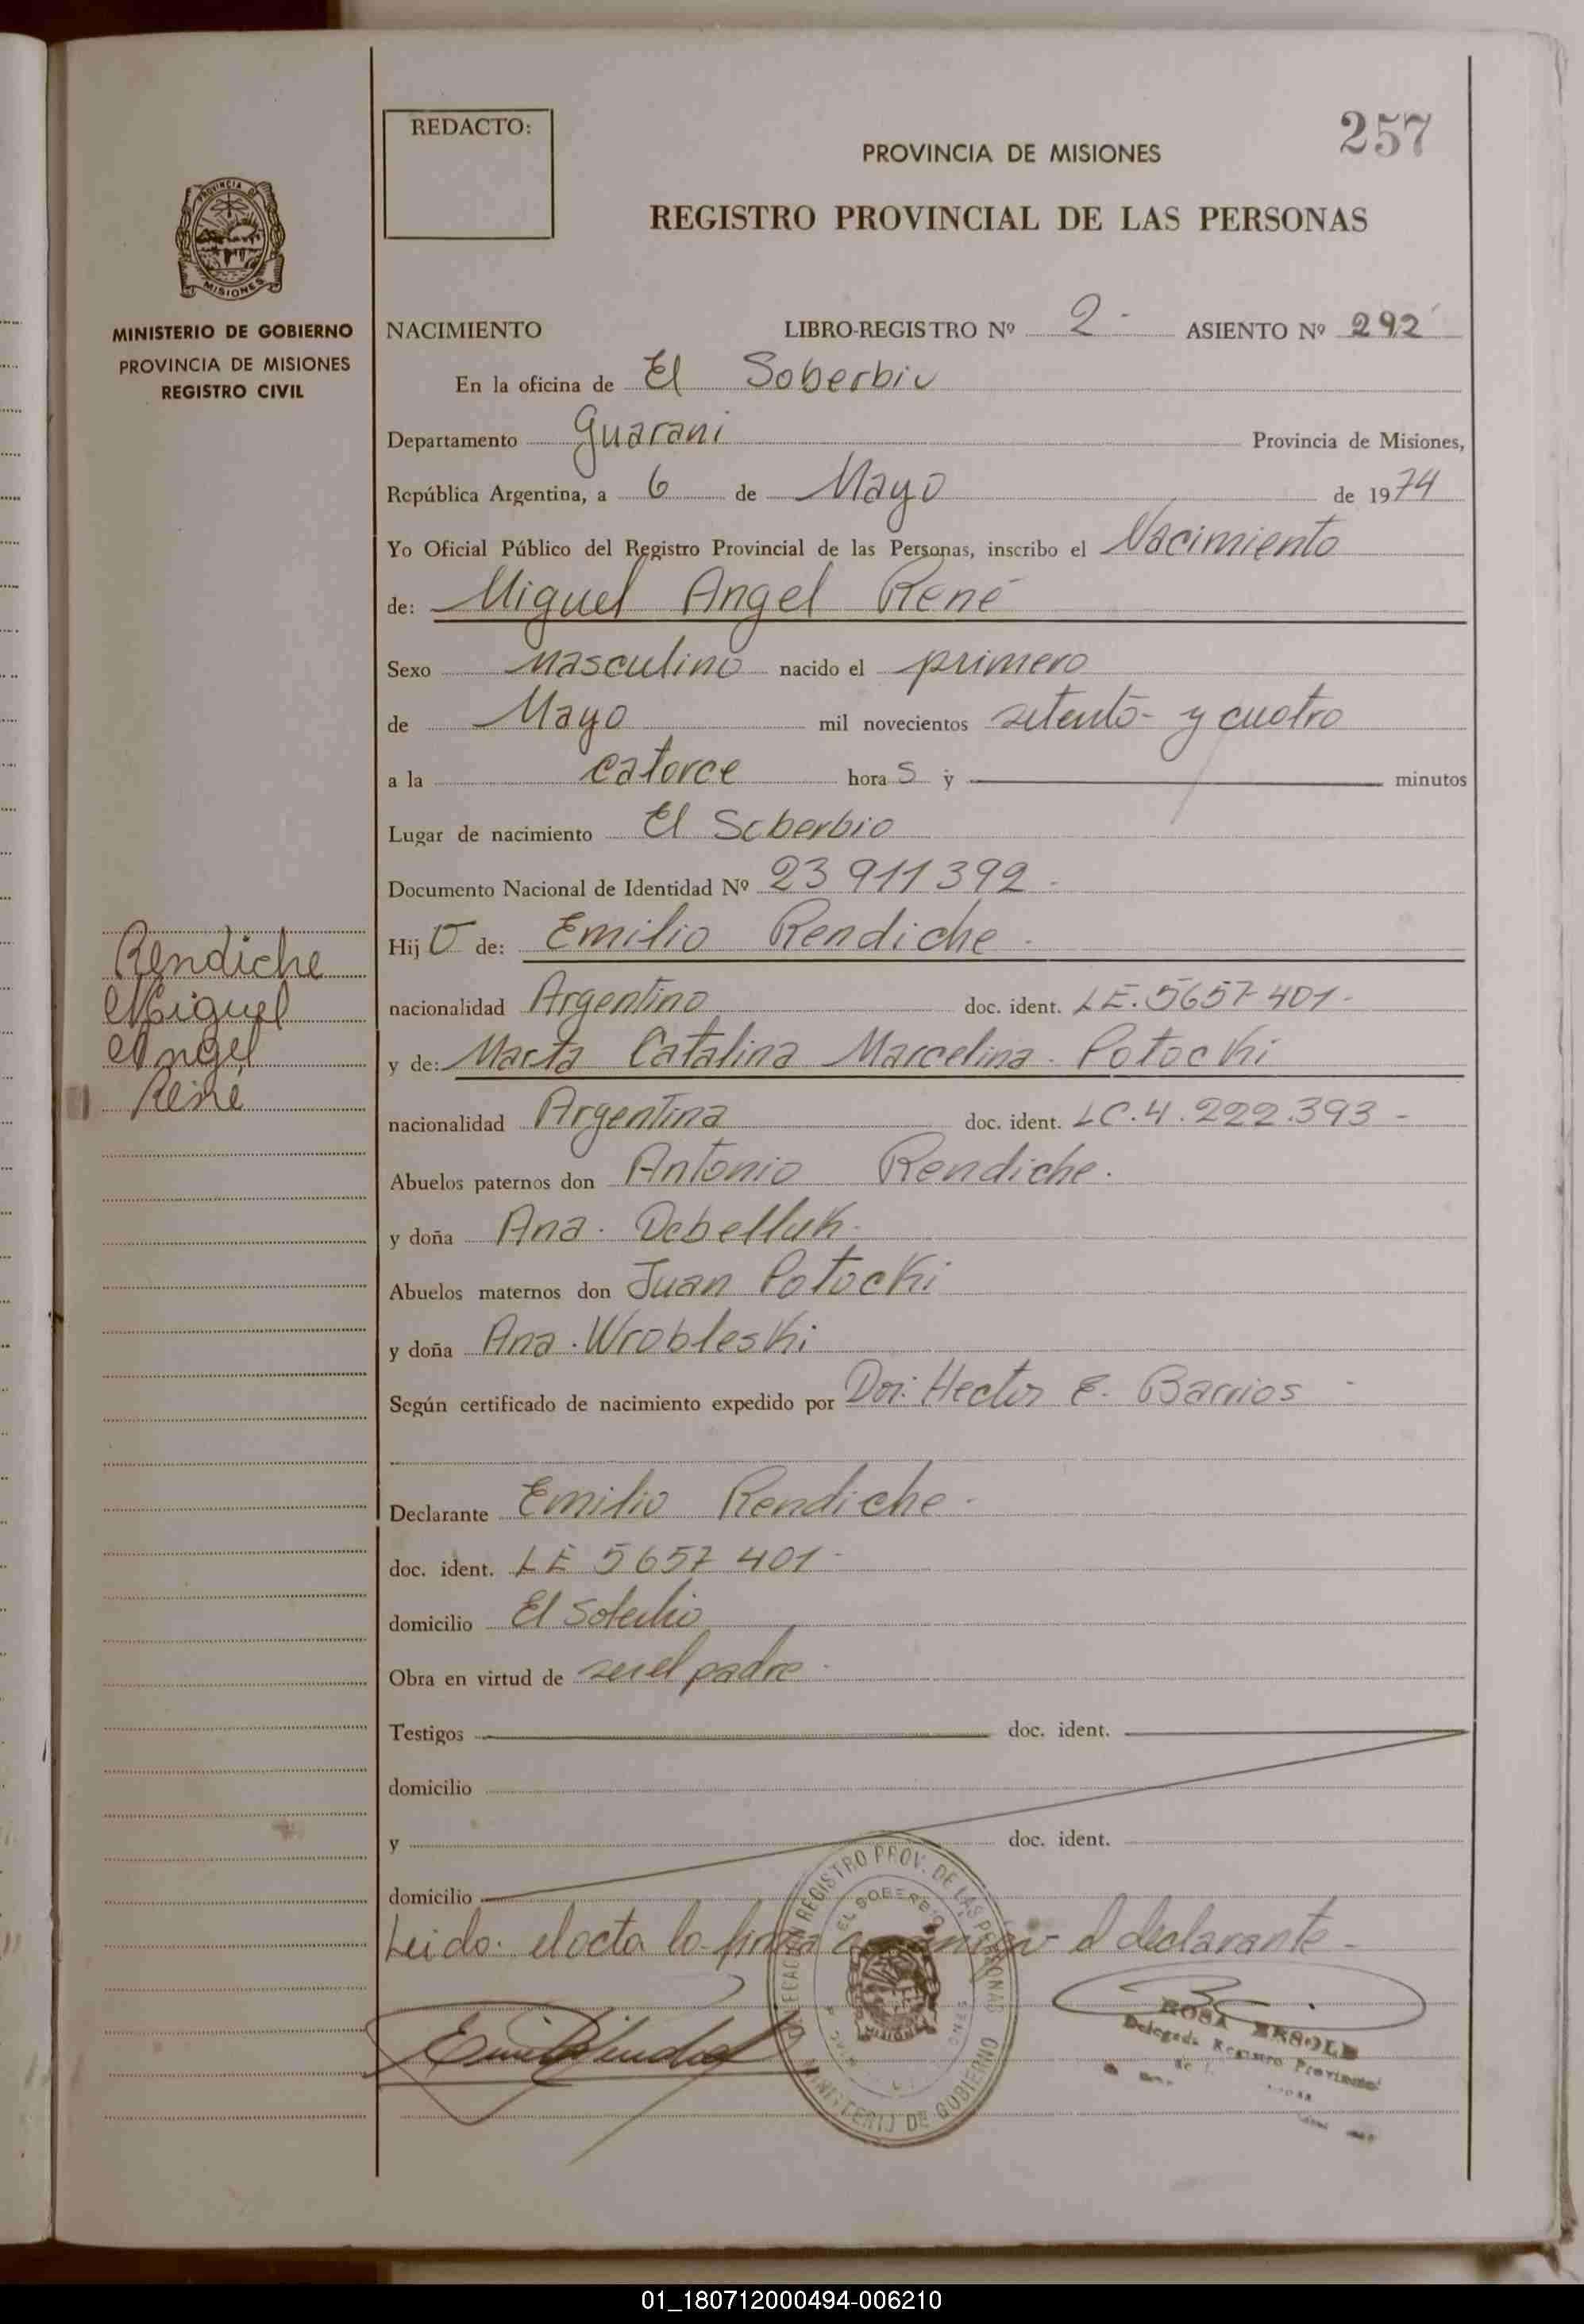 257
REDACTO:
PROVINCIA DE MISIONES
REGISTRO PROVINCIAL DE LAS PERSONAS
PROVINCIA DE
MISIONES
MINISTERIO DE GOBIERNO
PROVINCIA DE MISIONES
REGISTRO CIVIL
Rendiche
Miguel
Angel
René
NACIMIENTO LIBRO-REGISTRO Nº 2 - ASIENTO Nº 292
En la oficina de El Soberbio
Departamento Guarani Provincia de Misiones,
República Argentina, a 6 de Mayo de 1974
Yo Oficial Público del Registro Provincial de las Personas, inscribo el Nacimiento
de: Miguel Angel René
Sexo masculino nacido el primero
de Mayo mil novecientos setenta - y cuatro
a la catorce hora s y minutos
Lugar de nacimiento El Soberbio
Documento Nacional de Identidad Nº 23 911 392 -
Hij o de: Emilio Rendiche -
nacionalidad Argentino doc. ident. LE. 5657 401 -
y de: Marta Catalina Marcelina - Potocki
nacionalidad Argentina doc. ident. LC. 4.222.393 -
Abuelos paternos don Antonio Rendiche.
y doña Ana. Debelluk.
Abuelos maternos don Juan Potocki
y doña Ana. Wrobleski
Según certificado de nacimiento expedido por Dr. Hector E. Barrios -
Declarante Emilio Rendiche -
doc. ident. LE 5657 401 -
domicilio El Soberbio
Obra en virtud de ser el padre -
Testigos doc. ident.
domicilio
y doc. ident.
domicilio
Leido el acta la firma conmigo el declarante -
DELEGACION REGISTRO PROV. DE LAS PERSONAS
EL SOBERBIO
MISIONES
MINISTERIO DE GOBIERNO
ROSA
Delegada Registro Provincial
01_180712000494-006210